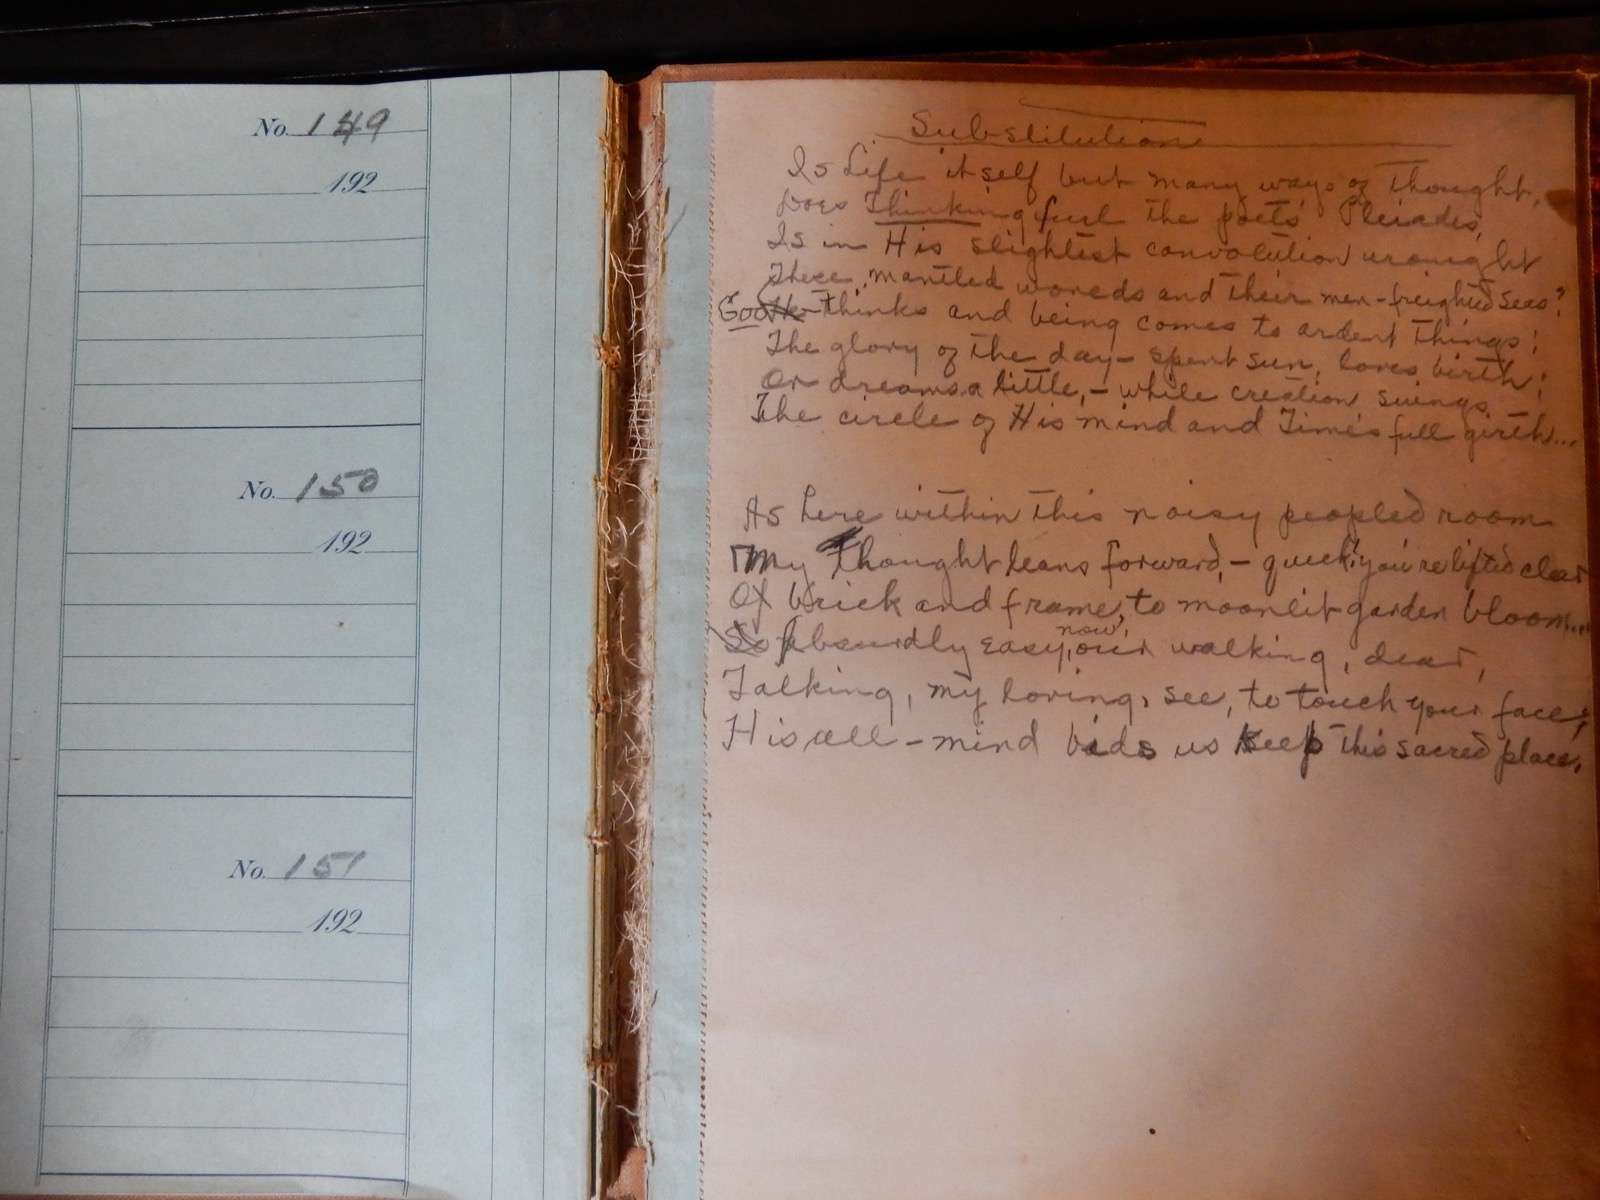 No. 149
192
No. 150
192
No. 151
192
Substitution
Is Life itself but many ways of thought,
Does Thinking furl the poets' Pleiades,
Is in His slightest convolution wrought
These mantled worlds and their men-freighted seas?
God thinks and being comes to ardent things:
The glory of the day-spent sun, loves birth;
Or dreams a little, - while creation swings
The circle of His mind and Time's full girth...
As here within this noisy peopled room
My thought leans forward, - quick! you're lifted clear
Of brick and frame, to moonlit garden bloom...
Absurdly easy, now, our walking, dear,
Talking, my loving, see, to touch your face,
His all-mind bids us keep this sacred place.